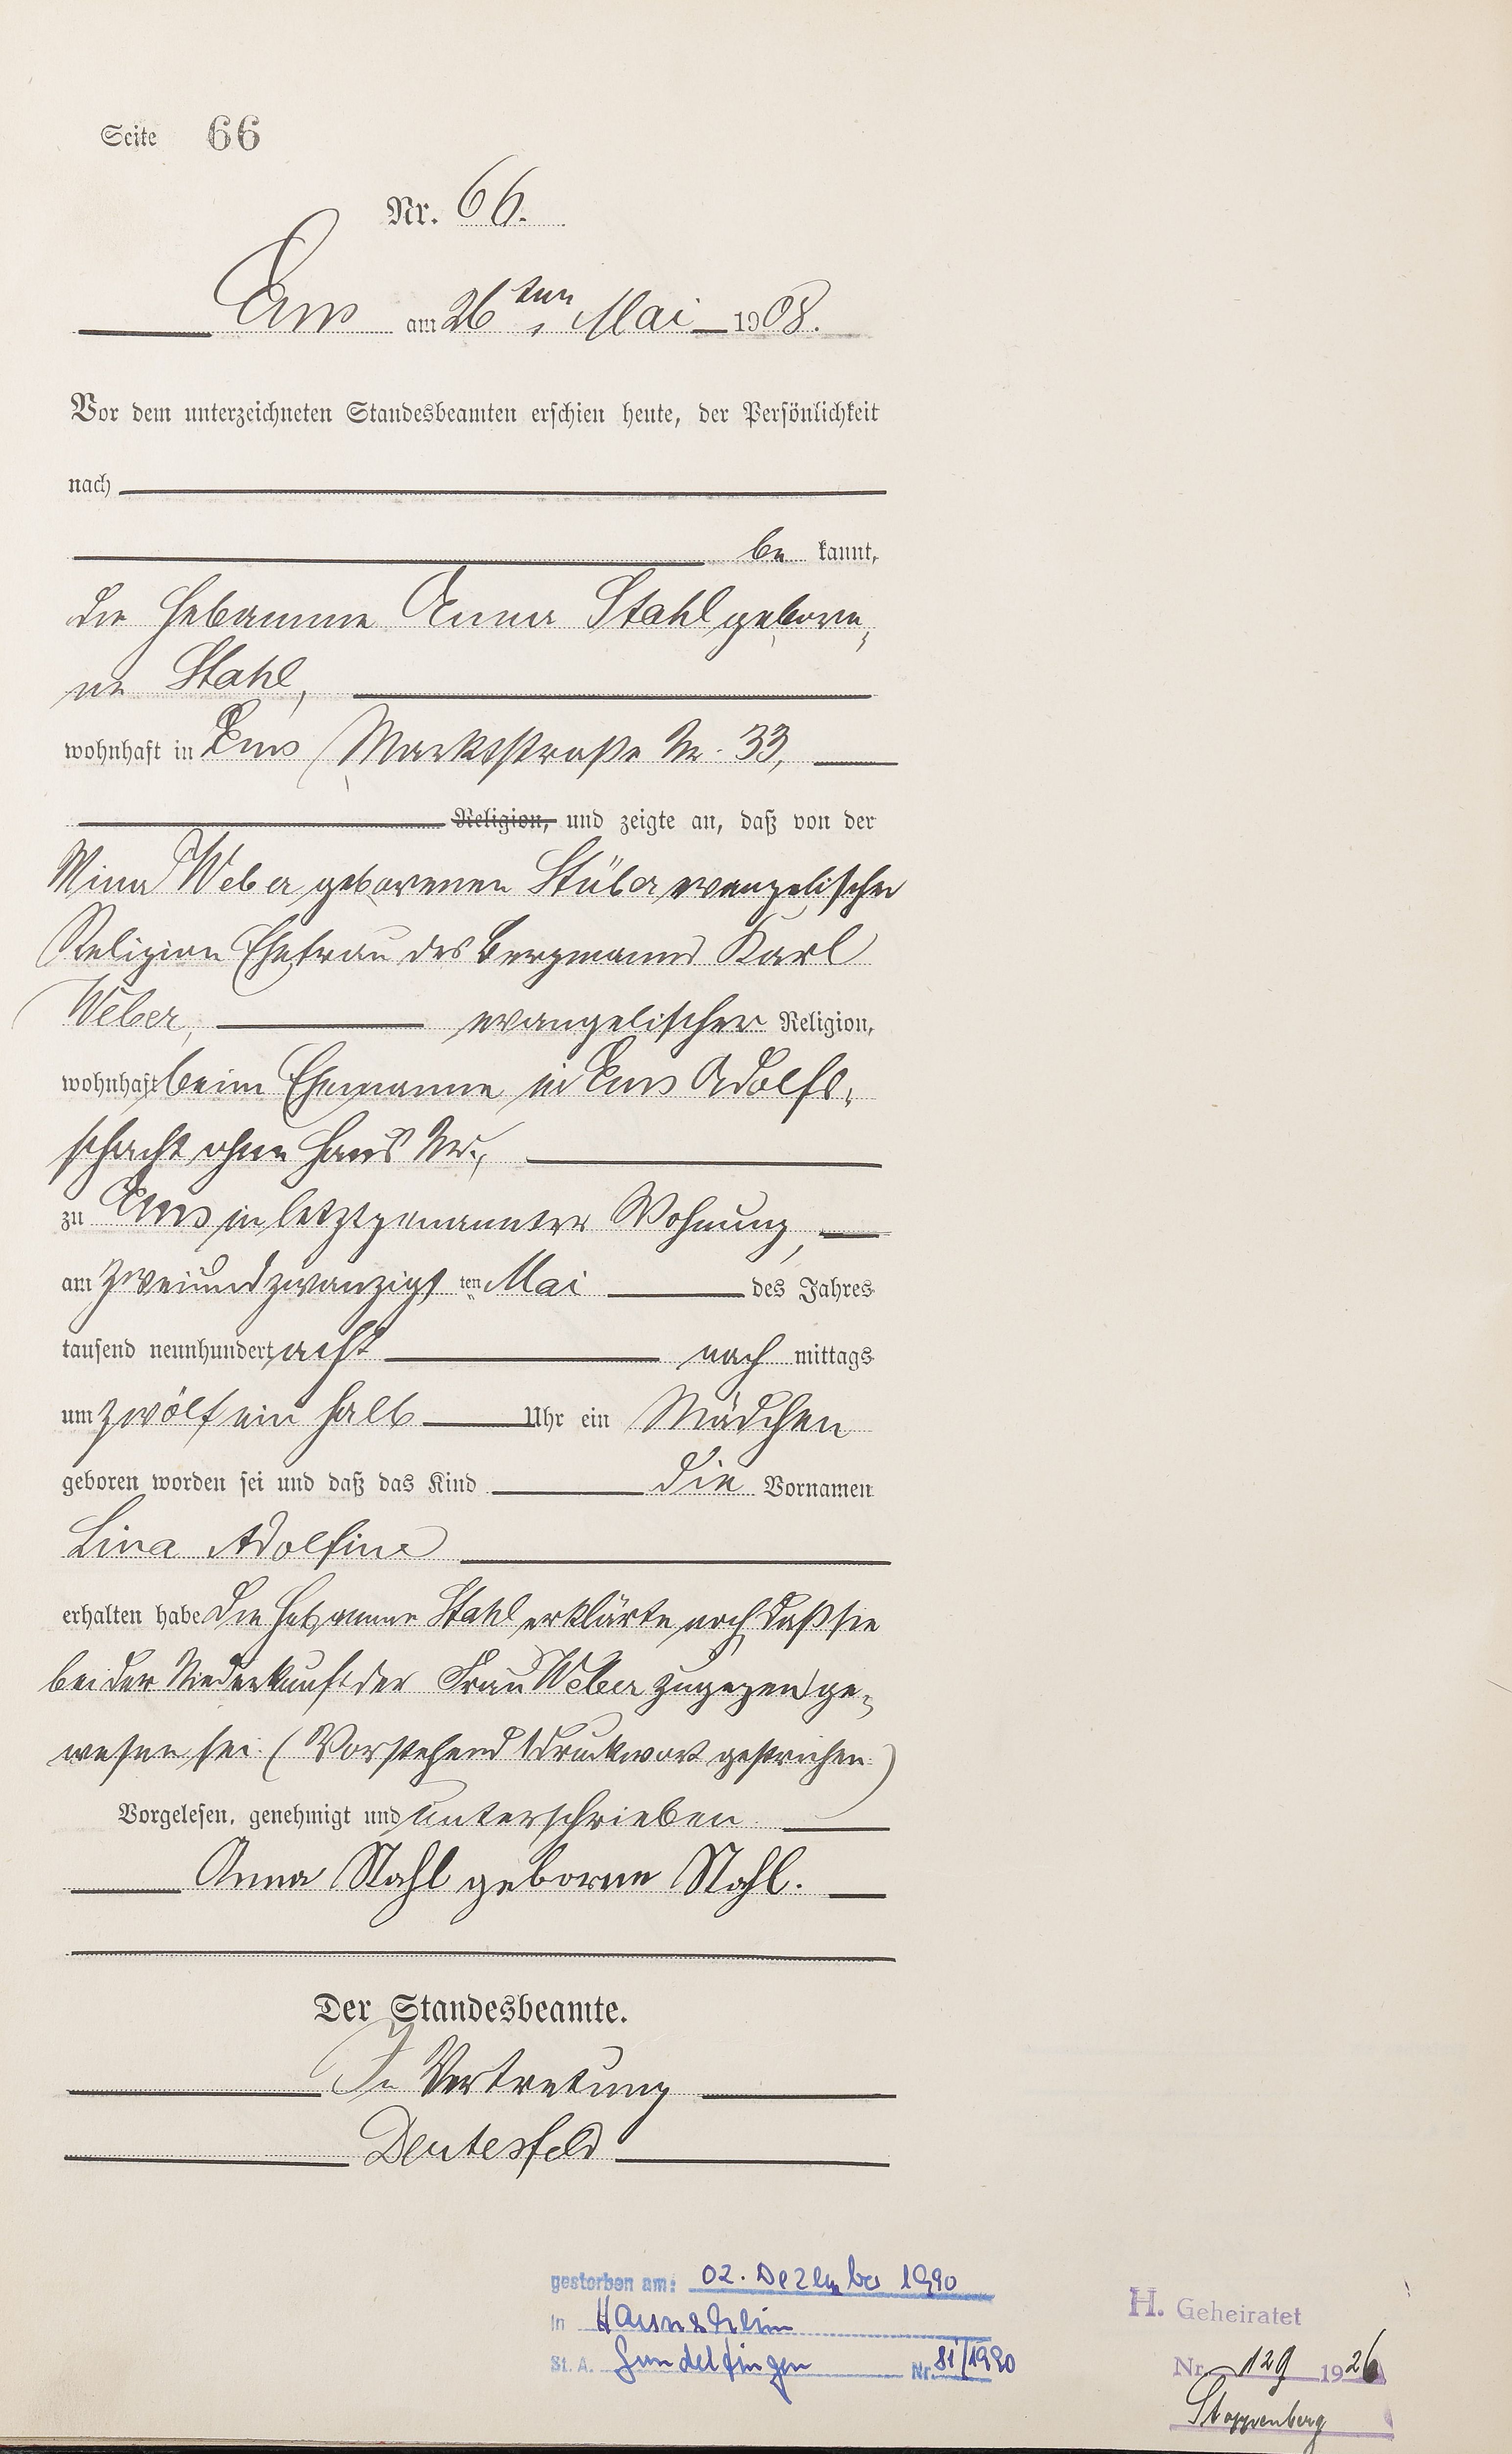 Seite 66
Nr. 66.
Ems am 26ten Mai 1908.
Vor dem unterzeichneten Standesbeamten erschien heute, der Persönlichkeit
nach
be kannt,
die Hebamme Anna Stahl gebore-
ne Stahl,
wohnhaft in Ems, Marktstraße Nr. 33,
Religion, und zeigte an, daß von der
Mina Weber geborenen Stüber evangelischer
Religion Ehefrau des Bergmanns Karl
Weber, evangelischer Religion,
wohnhaft beim Ehemanne in Ems Adolfs-
schacht ohne Haus Nr.,
zu Ems in letztgenannter Wohnung,
am zweiundzwanzigsten Mai des Jahres
tausend neunhundert acht nach mittags
um zwölf ein halb Uhr ein Mädchen
geboren worden sei und daß das Kind die Vornamen
Lina Adolfine
erhalten habe Die Hebamme Stahl erklärte noch, daß sie
bei der Niederkunft der Frau Weber zugegen ge-
wesen sei. (Vorstehend 1 Druckwort gestrichen.)
Vorgelesen, genehmigt und unterschrieben
Anna Stahl geborene Stahl.
Der Standesbeamte.
In Vertretung
Deutesfeld
gestorben am: 02. Dezember 1990
in Haunsheim
St. A. Gundelfingen Nr. 81/1990
H. Geheiratet
Nr. 129 1926
Stoppenberg